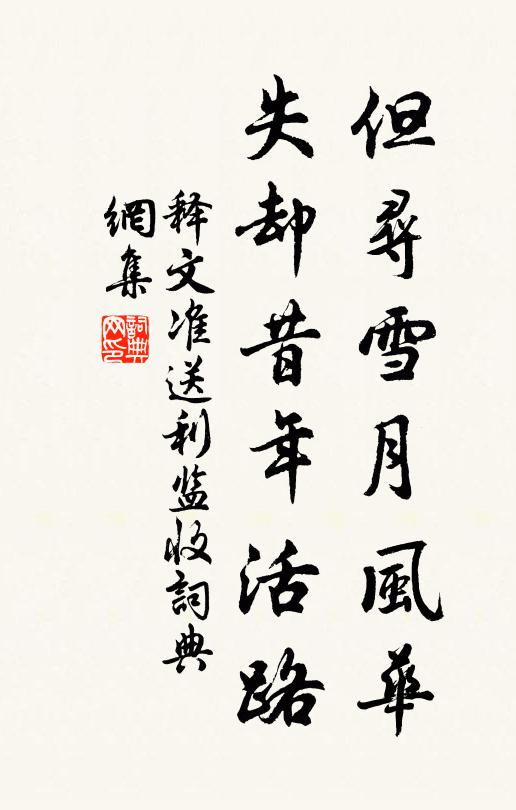 但尋雪月風華
失却昔年活路
释文准送利監收詞典
網集
詞典
网印